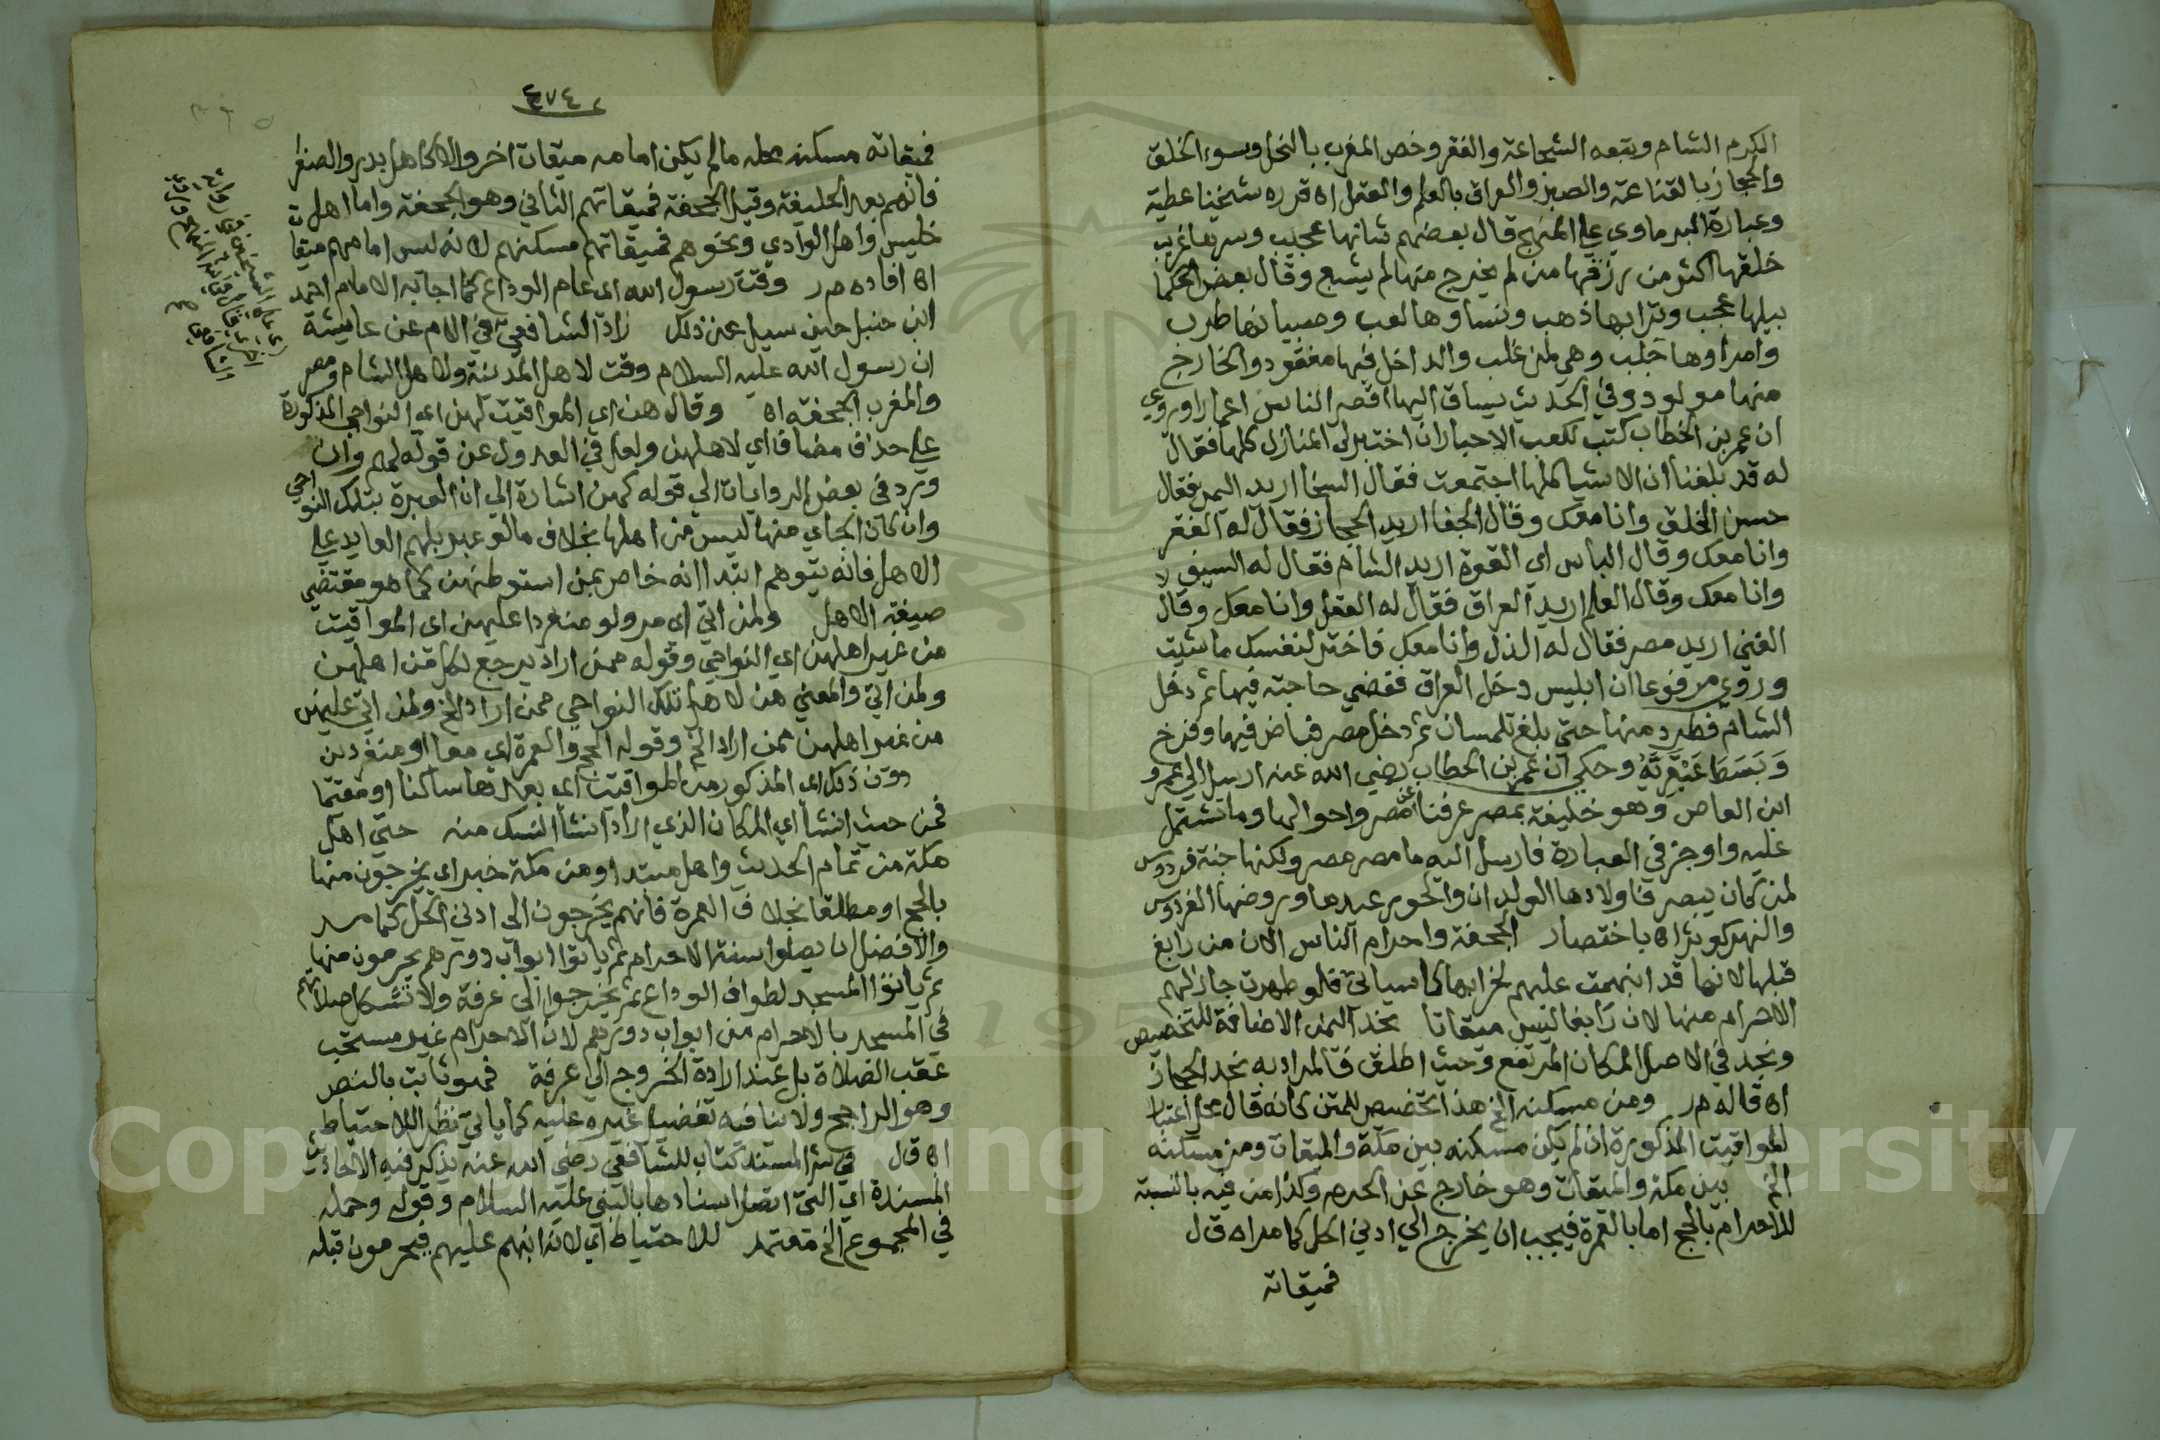 الكرم الشام ويتبعه الشجاعة والفقر وخص المغرب بالبخل وسوء الخلق
والحجاز بالقناعة والصبر والعراق بالعلم والعقل اه قرره شيخنا عطية
وعبارة البرماوي على المنهج قال بعضهم شانها عجيب وسرها غريب
خلقها اكثر من رزقها من لم يخرج منها لم يشبع وقال بعض الحكما
نيلها عجب وترابها ذهب ونساوها لعب وصبيانها طرب
وامراوها جلب وهي لمن غلب والداخل فيها مفقود والخارج
منها مولود وفي الحديث يساق اليها اقصر الناس اعمارا وروي
ان عمر بن الخطاب كتب لكعب الاحبار ان اختبر لي المنازل كلها فقال
له قد بلغنا ان الاشيا كلها اجتمعت فقال السخا اريد اليمن فقال
حسن الخلق وانا معك وقال الجفا اريد الحجاز فقال له الفقر
وانا معك وقال الباس اي القوة اريد الشام فقال له السيف
وانا معك وقال العلم اريد العراق فقال له العقل وانا معك وقال
الغني اريد مصر فقال له الذل وانا معك فاختر لنفسك ما شيت
وروي مرفوعا ان ابليس دخل العراق فقضي حاجته فيها ثم دخل
الشام فطرد منها حتي بلغ تلمسان ثم دخل مصر فباض فيها وفرخ
وبسط عبقريه وحكي ان عمر بن الخطاب رضي الله عنه ارسل الي عمرو
ابن العاص وهو خليفة بمصر عرفنا عن مصر واحوالها وما تشتمل
عليه واوجز في العبارة فارسل اليه ما مصر مصر ولكنها جنة فردوس
لمن كان يبصر فاولادها الولدان والحور عيدها وروضها الفردوس
والنهر كوثر اه باختصار الجحفة واحرام الناس الان من رابغ
قبلها لانها قد ابهمت عليهم لخرابها كما سياتي فلو ظهرت جاز لهم
الاحرام منها لان رابغا ليس ميقاتا نجد اليمن الاضافة للتخصيص
ونجد في الاصل المكان المرتفع وحيث اطلق فالمراد به نجد الحجاز
اه قاله م ر ومن مسكنه الخ هذا تخصيص للمتن كانه قال محل اعتبار
المواقيت المذكورة ان لم يكن مسكنه بين مكة والميقات ومن مسكنه
الخ بين مكة والميقات وهو خارج عن الحرم وكذا من فيه بالنسبة
للاحرام بالحج اما بالعمرة فيجب ان يخرج الي ادني الحل كما مر اه ق ل
فميقاته
٣٧٤
فميقاته مسكنه محله ما لم يكن امامه ميقات اخر والا كاهل بدر والصفرا
فانهم بعد الحليفة وقبل الجحفة فميقاتهم الثاني وهو الجحفة واما اهل
خليص واهل الوادي ونحوهم فميقاتهم مسكنهم لانه ليس امامهم ميقات
اه افاده م ر وقت رسول الله اي عام الوداع كما اجاب به الامام احمد
ابن حنبل حين سيل عن ذلك زاد الشافعي في الام عن عايشة
ان رسول الله عليه السلام وقت لاهل المدينة ولاهل الشام ومصر
والمغرب الجحفة اه وقال هن اي المواقيت لهن اي النواحي المذكورة
علي حذف مضاف اي لاهلهن ولعل في العدول عن قوله لهم وان
ورد في بعض الروايات الي قوله لهن اشارة الي ان العبرة بتلك النواحي
وان كان الجاي منها ليس من اهلها بخلاف ما لو عبر بلهم العايد علي
الاهل فانه يتوهم ابتدا انه خاص بمن استوطنهن كما هو مقتضي
صيغة الاهل ولمن اتي اي مر ولو منفردا عليهن اي المواقيت
من غير اهلهن اي النواحي وقوله ممن اراد يرجع لكل من اهلهن
ولمن اتي والمعني هن لاهل تلك النواحي ممن اراد الخ ولمن اتي عليهن
من غير اهلهن ممن اراد الخ وقوله الحج والعمرة اي معا او منفردين
دون ذلك اي المذكور من المواقيت اي بعدها ساكنا او مقيما
فمن حيث انشا اي المكان الذي اراد انشا النسك منه حتي اهل
مكة من تمام الحديث واهل مبتدا ومن مكة خبر اي يخرجون منها
بالحج او مطلقا بخلاف العمرة فانهم يخرجون الي ادني الحل كما مر
والافضل ان يصلوا سنة الاحرام ثم ياتوا ابواب دورهم يحرمون منها
ثم ياتوا المسجد لطواف الوداع ثم يخرجوا الي عرفة ولا تشكل صلاتهم
في المسجد بالاحرام من ابواب دورهم لان الاحرام غير مستحب
عقب الصلاة بل عند ارادة الخروج الي عرفة فهو ثابت بالنص
وهو الراجح ولا ينافيه تفضيل غيره عليه كما ياتي نظرا للاحتياط
اه ق ل في شرح المسند كتاب للشافعي رضي الله عنه يذكر فيه الاحاديث
المسندة اي التي اتصل اسنادها بالنبي عليه السلام وقوله وحمله
في المجموع الخ معتمد للاحتياط اي لانه ابهم عليهم فيحرمون قبله